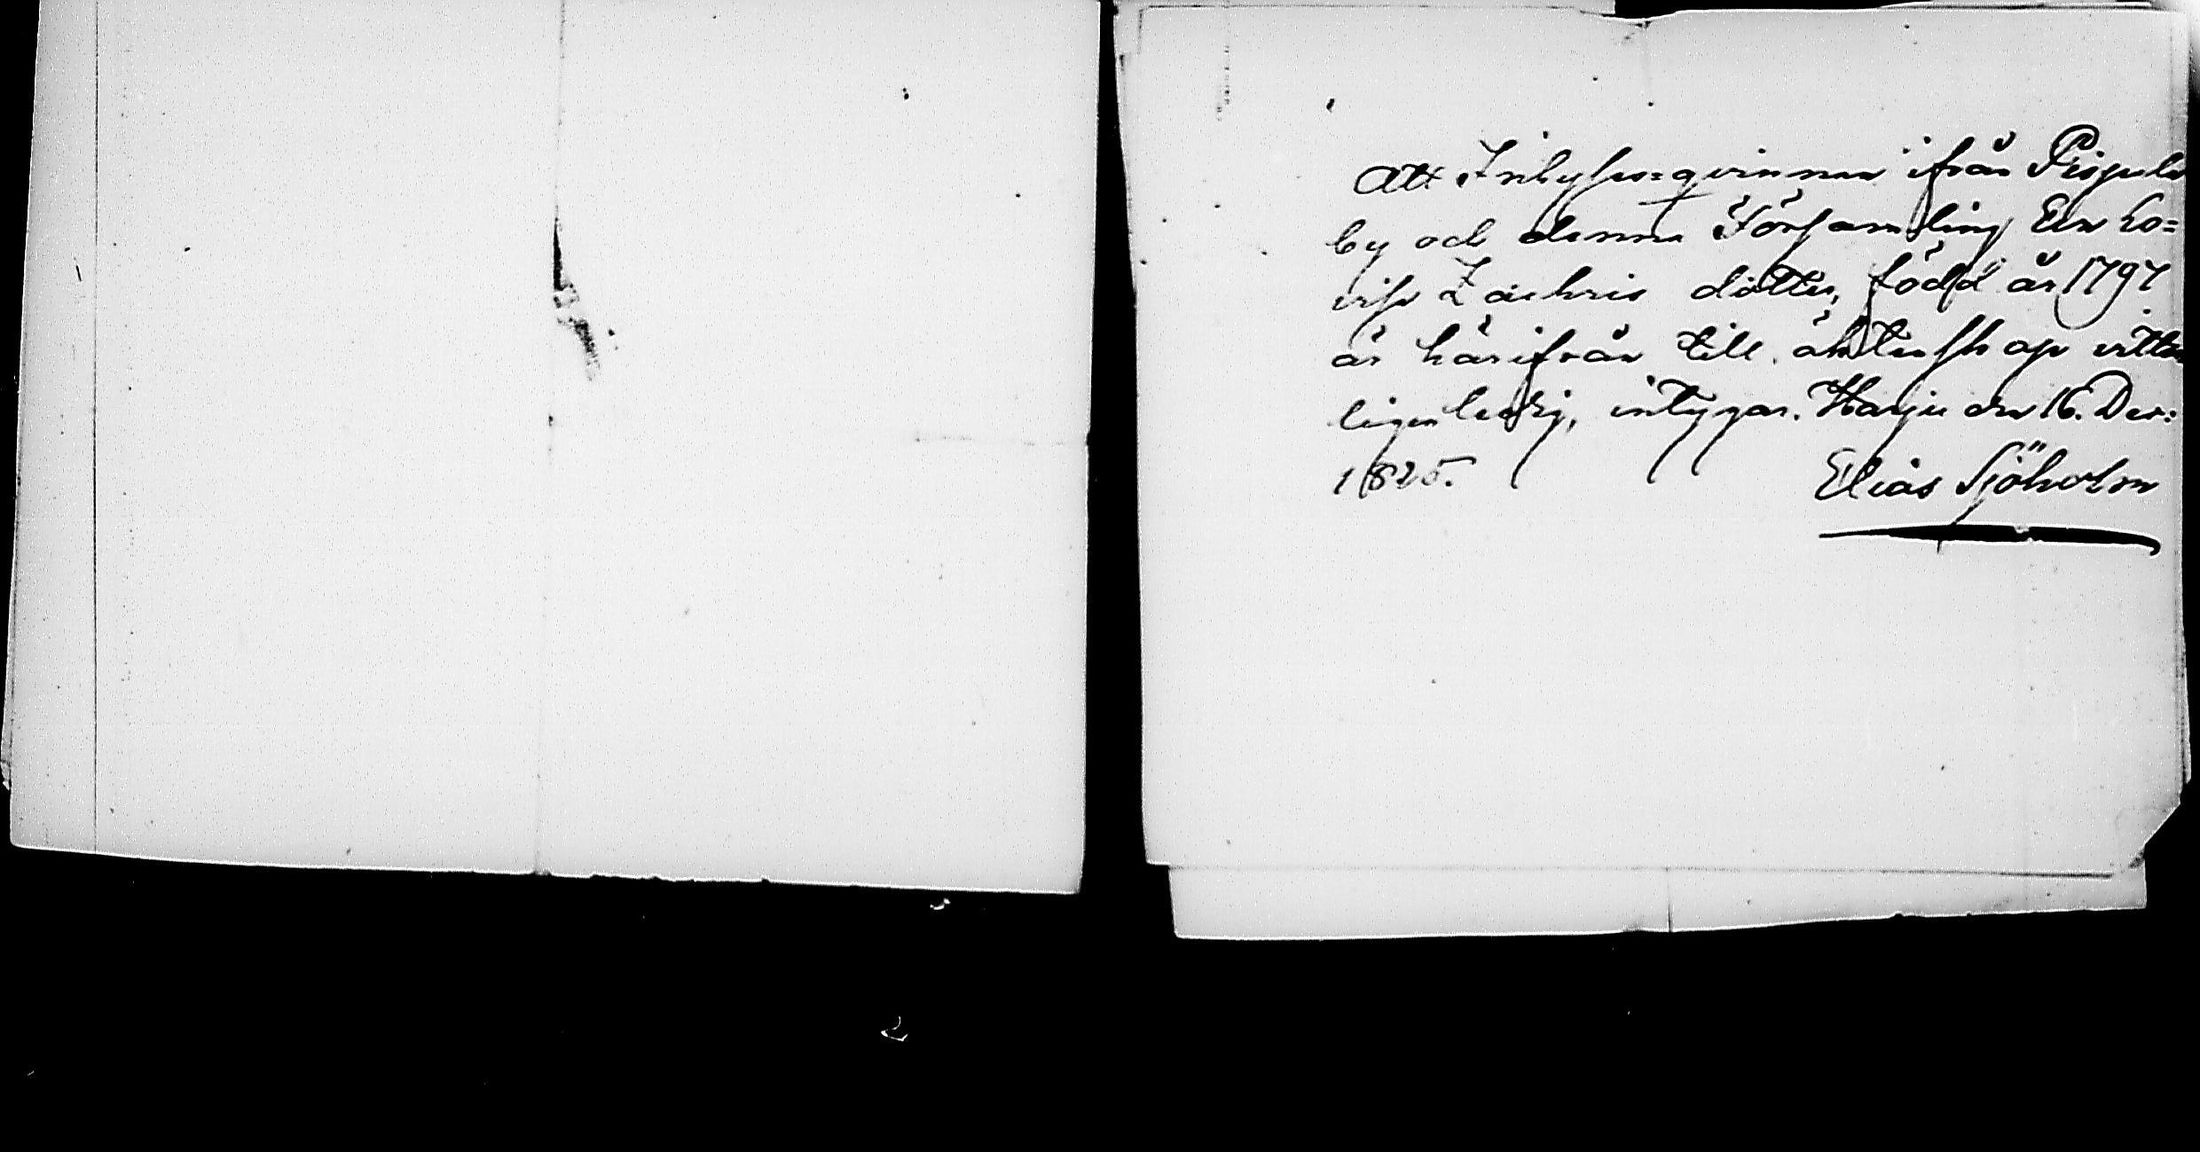 Att Inhyses=qvinnan ifrån Pispala
by och denna Församling Eva Lo=
visa Zachris dotter, född år 1797
är härifrån till äktenskap vitter
ligen ledig, intygar. Harju den 16. Dec:
1825. Elias Sjöholm